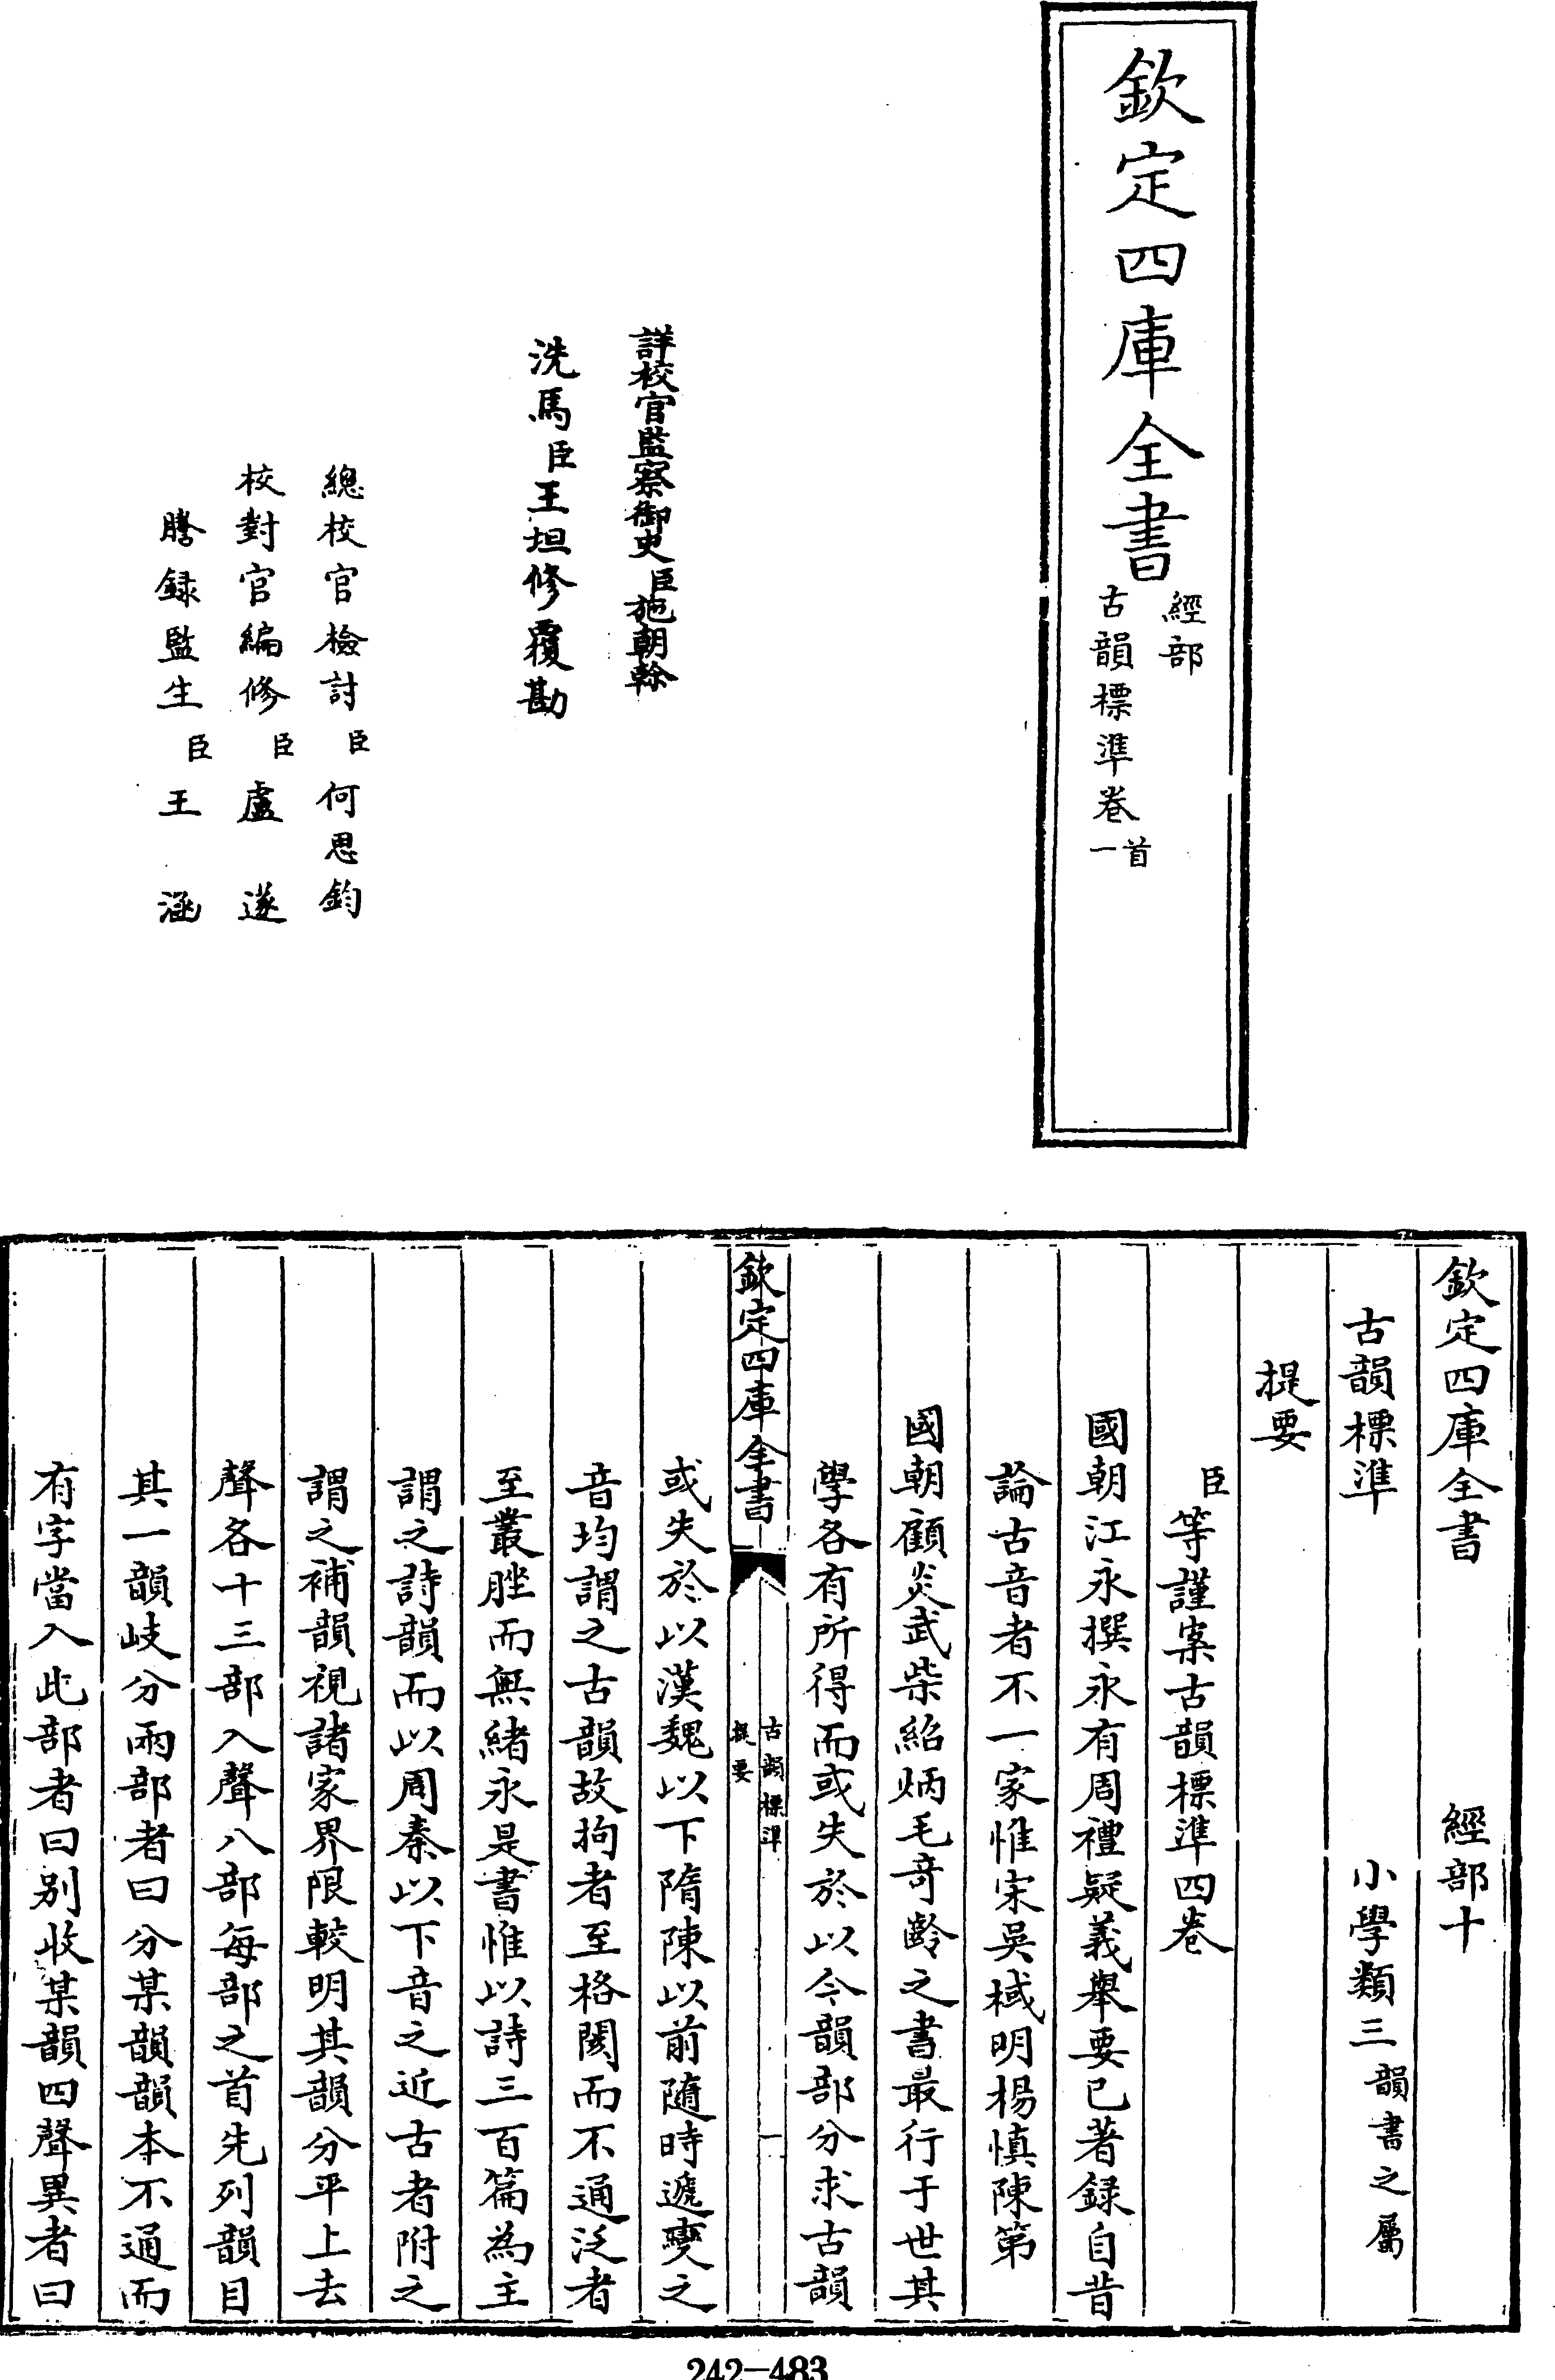 欽定四庫全書
經部
古韻標準卷
首
一
詳校官監察御史臣施朝榦
洗馬臣王坦修覆勘
總校官檢討臣何思鈞
校對官編修臣盧遂
謄録監生臣王涵
欽定四庫全書 經部十
古韻標準 小學類三韻書之屬
提要
臣等謹案古韻標準四卷
國朝江永撰永有周禮疑義舉要已著録自昔
論古音者不一家惟宋吳棫明楊慎陳第
國朝顧炎武柴紹炳毛奇齡之書最行于世其
學各有所得而或失於以今韻部分求古韻
欽定四庫全書
古韻標準
提要
一
或失於以漢魏以下隋陳以前隨時遞變之
音均謂之古韻故拘者至格閡而不通泛者
至叢脞而無緒永是書惟以詩三百篇為主
謂之詩韻而以周秦以下音之近古者附之
謂之補韻視諸家界限較明其韻分平上去
聲各十三部入聲八部每部之首先列韻目
其一韻岐分兩部者曰分某韻韻本不通而
有字當入此部者曰别收某韻四聲異者曰
242-483